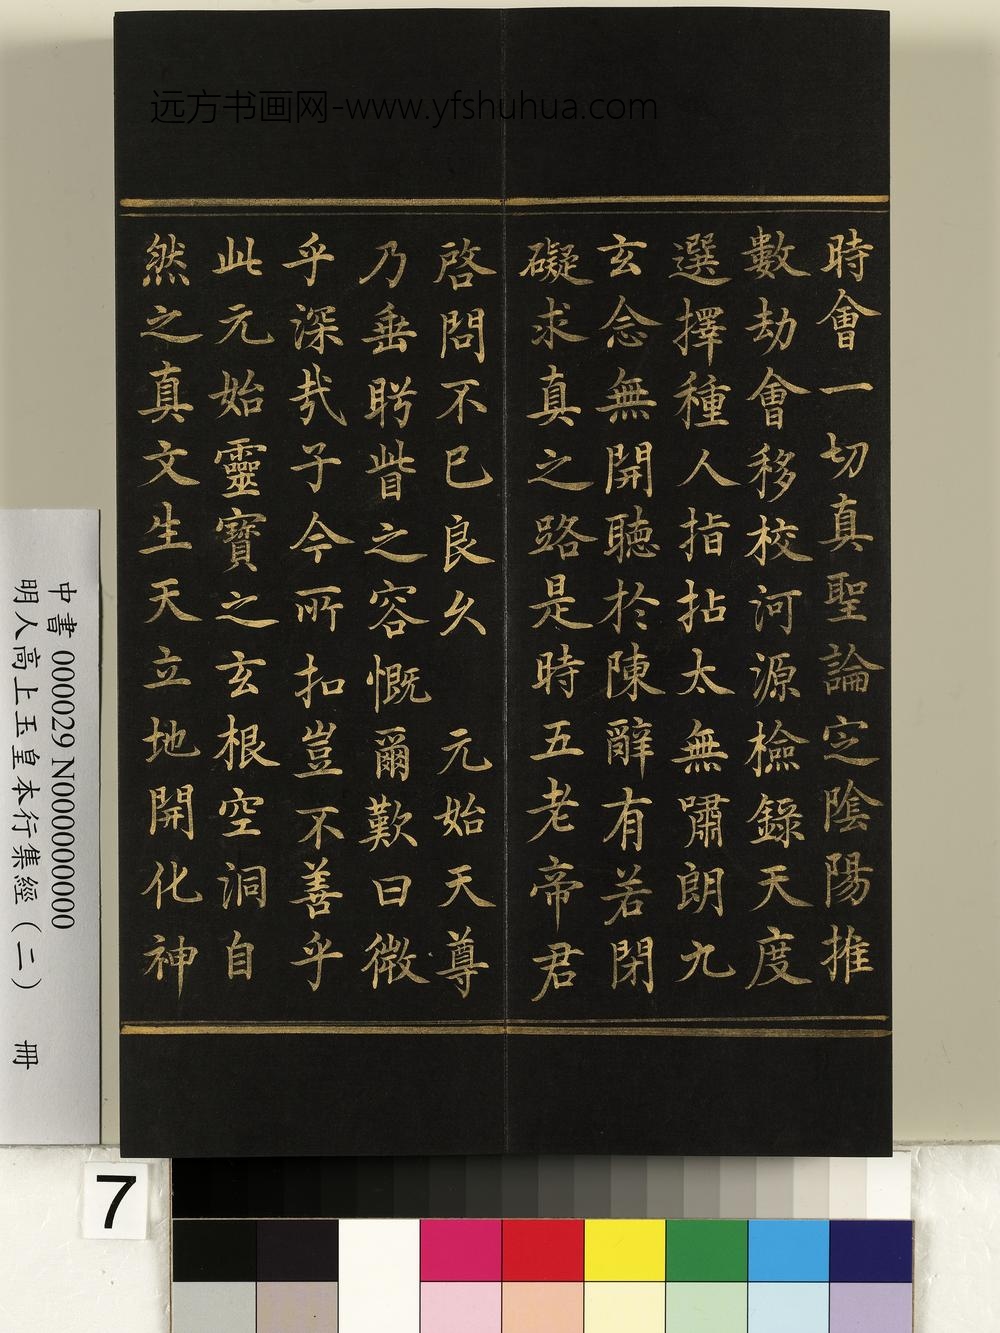 远方书画网-www.yfshuhua.com
時會一切真聖論定陰陽推
數劫會移校河源檢錄天度
選擇種人指拈太無嘯朗九
玄念無開聽於陳辭有若閉
礙求真之路是時五老帝君
啓問不已良久 元始天尊
乃垂眄眥之容慨爾歎曰微
乎深哉子今所扣豈不善乎
此元始靈寶之玄根空洞自
然之真文生天立地開化神
中書 000029 N000000000
明人高上玉皇本行集經(二) 冊
7